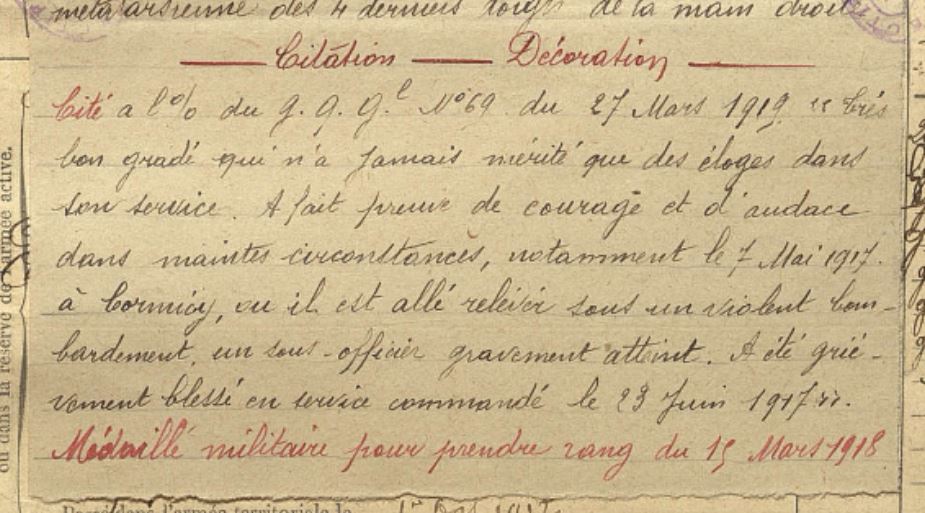 métatarsienne des 4 derniers doigts de la main droit
Citation — Décoration
Cité a l'o/o du g. q. g.l N°69 du 27 Mars 1919 "très
bon gradé qui n'a jamais mérité que des éloges dans
son service. A fait preuve de courage et d'audace
dans maintes circonstances, notamment le 7 Mai 1917.
à Cormicy, ou il est allé relever sous un violent bom-
bardement, un sous-officier gravement atteint. A été griè-
vement blessé en service commandé le 23 Juin 1917".
Médaille militaire pour prendre rang du 15 Mars 1918
ou dans la réserve de l'armée active.
Passé dans l'armée territoriale le